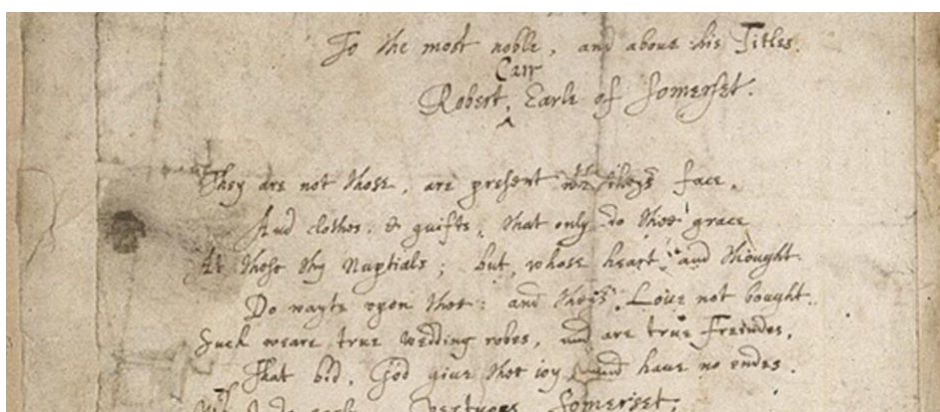 To the most noble, and aboue his Titles.
Carr
Robert, Earle of Somerset.
^
They are not those, are present wth theyr face,
And clothes, & guifts, that only do thee grace
At these thy Nuptials; but, whose heart, and thought
Do wayte vpon thee: and theyr Loue not bought.
Such weare true wedding robes, and are true Freindes,
That bid, God giue thee ioy, and haue no endes.
vertuous Somerset,